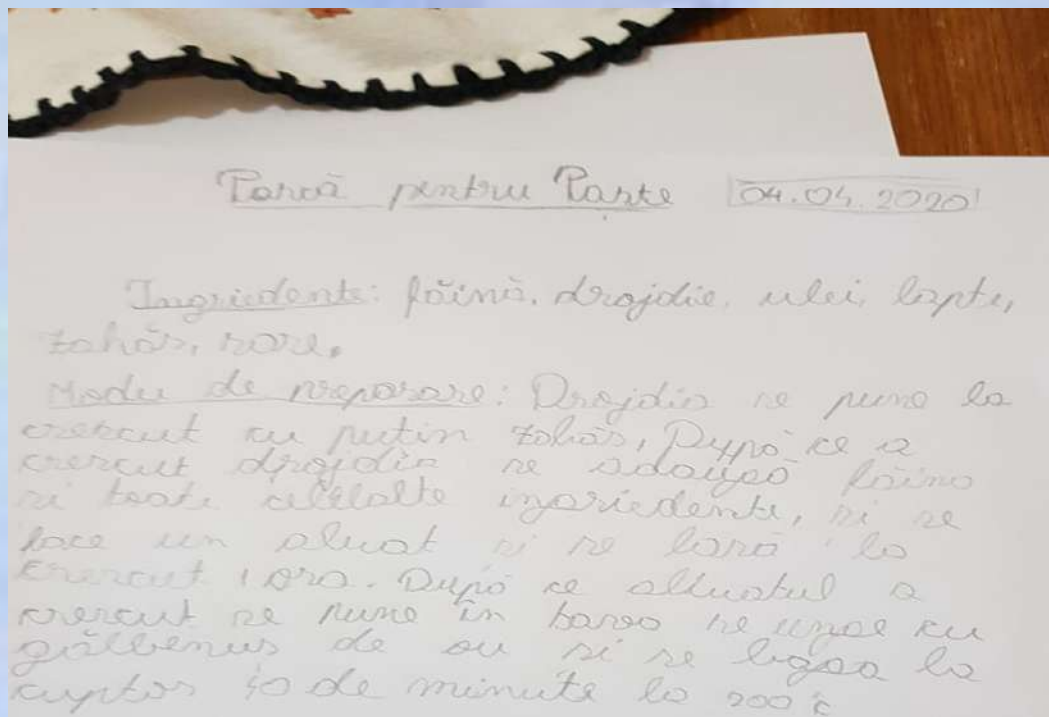 Pască pentru Paște 04.04.2020
Ingriedente: făină, drojdie, ulei, lapte,
zahăr, sare.
Modu de preparare: Drojdia se pune la
crescut cu putin zahăr, După ce a
crescut drojdia se adaugă făina
si toate celelalte ingriedente, si se
face un aluat si se lasă la
crescut 1 oră. După ce alluatul a
crescut se pune în tava se unge cu
gălbenus de ou si se bagaa la
cuptor 40 de minute la 200°c